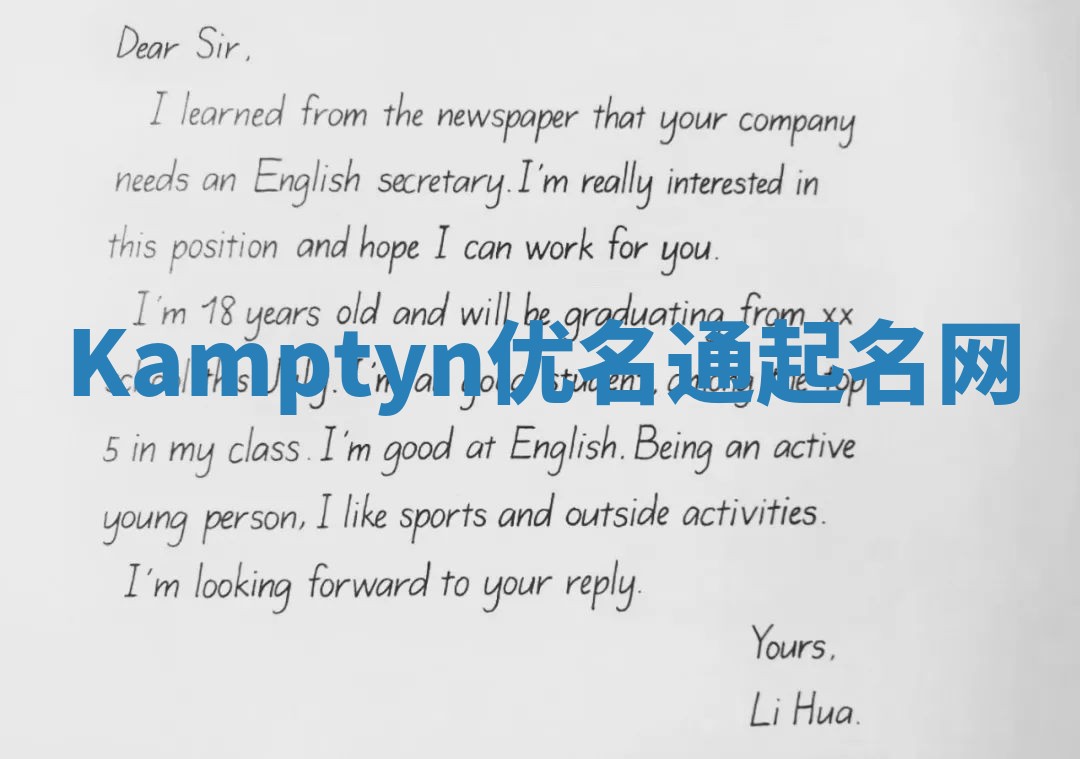 Dear Sir,
I learned from the newspaper that your company
needs an English secretary. I'm really interested in
this position and hope I can work for you.
I'm 18 years old and will be graduating from xx
Kamptyn优名通起名网
school this July. I'm a good student, among the top
5 in my class. I'm good at English. Being an active
young person, I like sports and outside activities.
I'm looking forward to your reply.
Yours,
Li Hua.